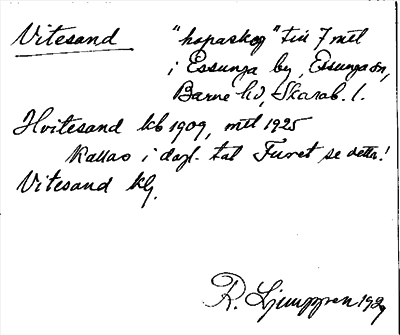 Vitesand "hopaskog" till 7 mtl
i Essunga by, Essunga sn,
Barne hd, Skarab. l.
Hvitesand kb 1909, mtl 1925
Kallas i dagl. tal Furet se detta!
Vitesand kg.
R. Ljunggren 1929